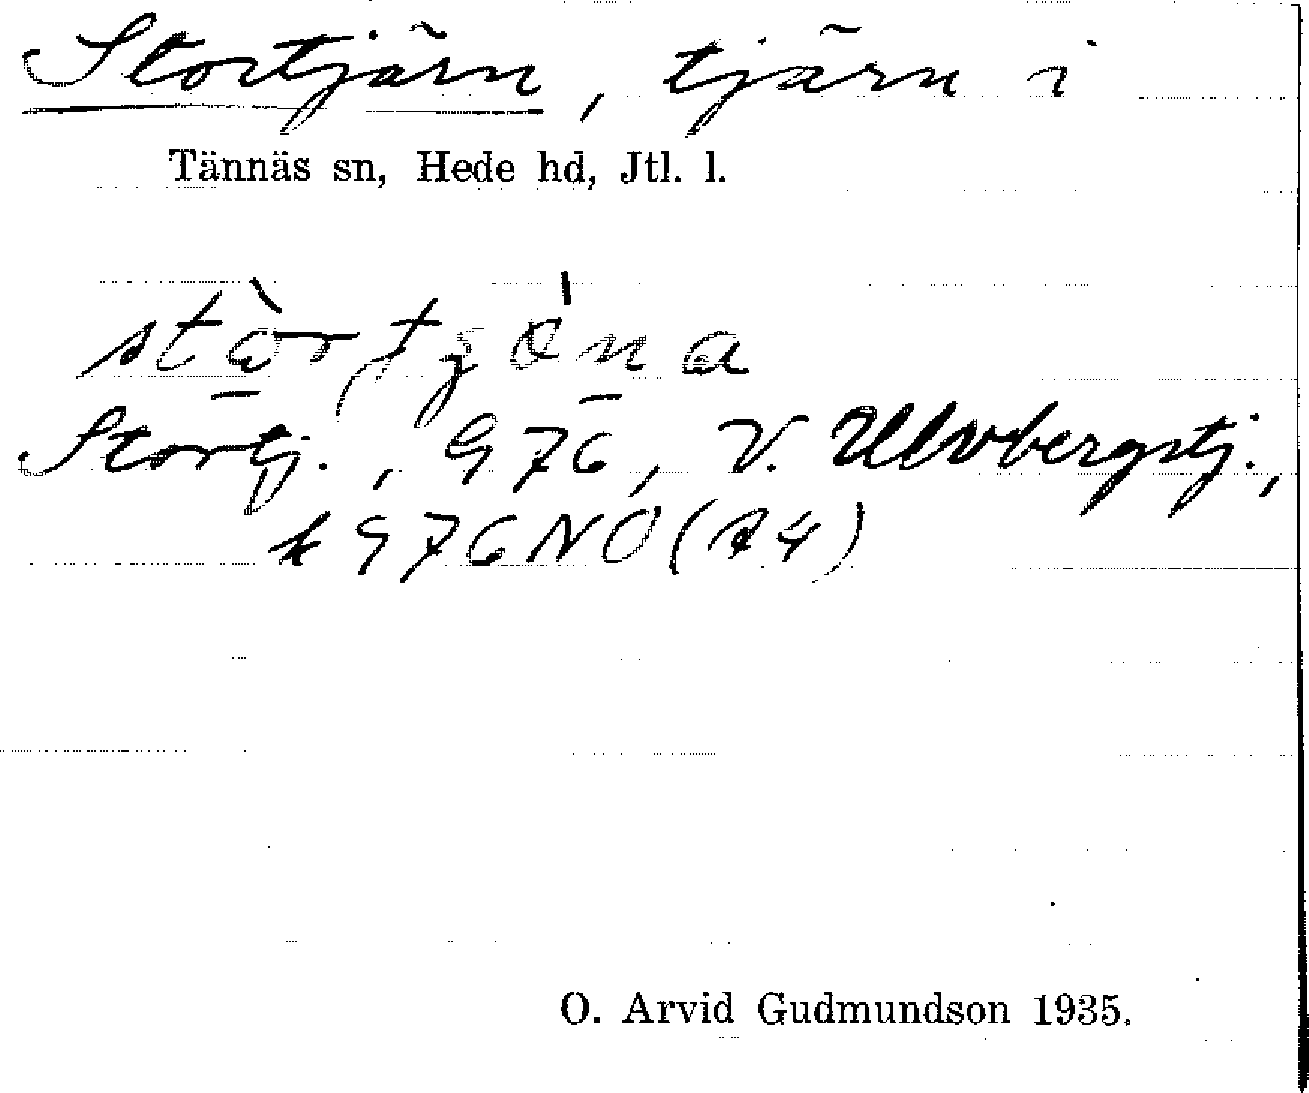 Stortjärn, tjärn i
Tännäs sn, Hede hd, Jtl. l.
Stortj., 976, V. Ulvbergstj.,
k 976 NO (A4)
O. Arvid Gudmundson 1935.